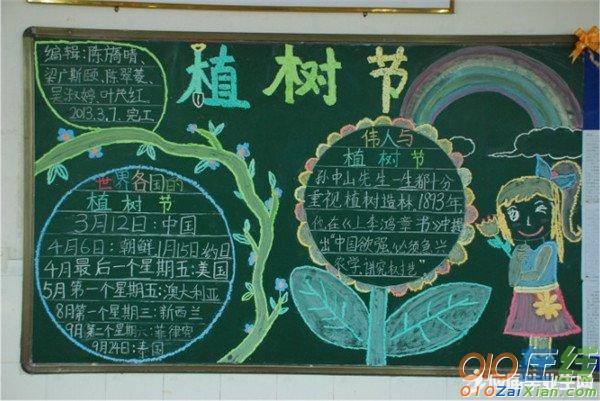 植树节
编辑:陈旖晴、
梁广斯颐、陈翠菱、
吴淑婷、叶芷红、
2013.3.7、完工
世界各国的
植树节
3月12日:中国
4月6日:朝鲜1月15日:约旦
4月最后一个星期五:美国
5月第一个星期五:澳大利亚
8月第一个星期三:新西兰
9月第二个星期六:菲律宾
9月24日:泰国
伟人与
植树节
孙中山先生一生都十分
重视植树造林1893年
他在《上李鸿章书》中提
出"中国欲强,必须急兴
农学,讲究树艺"
010在线
010ZaiXian.com